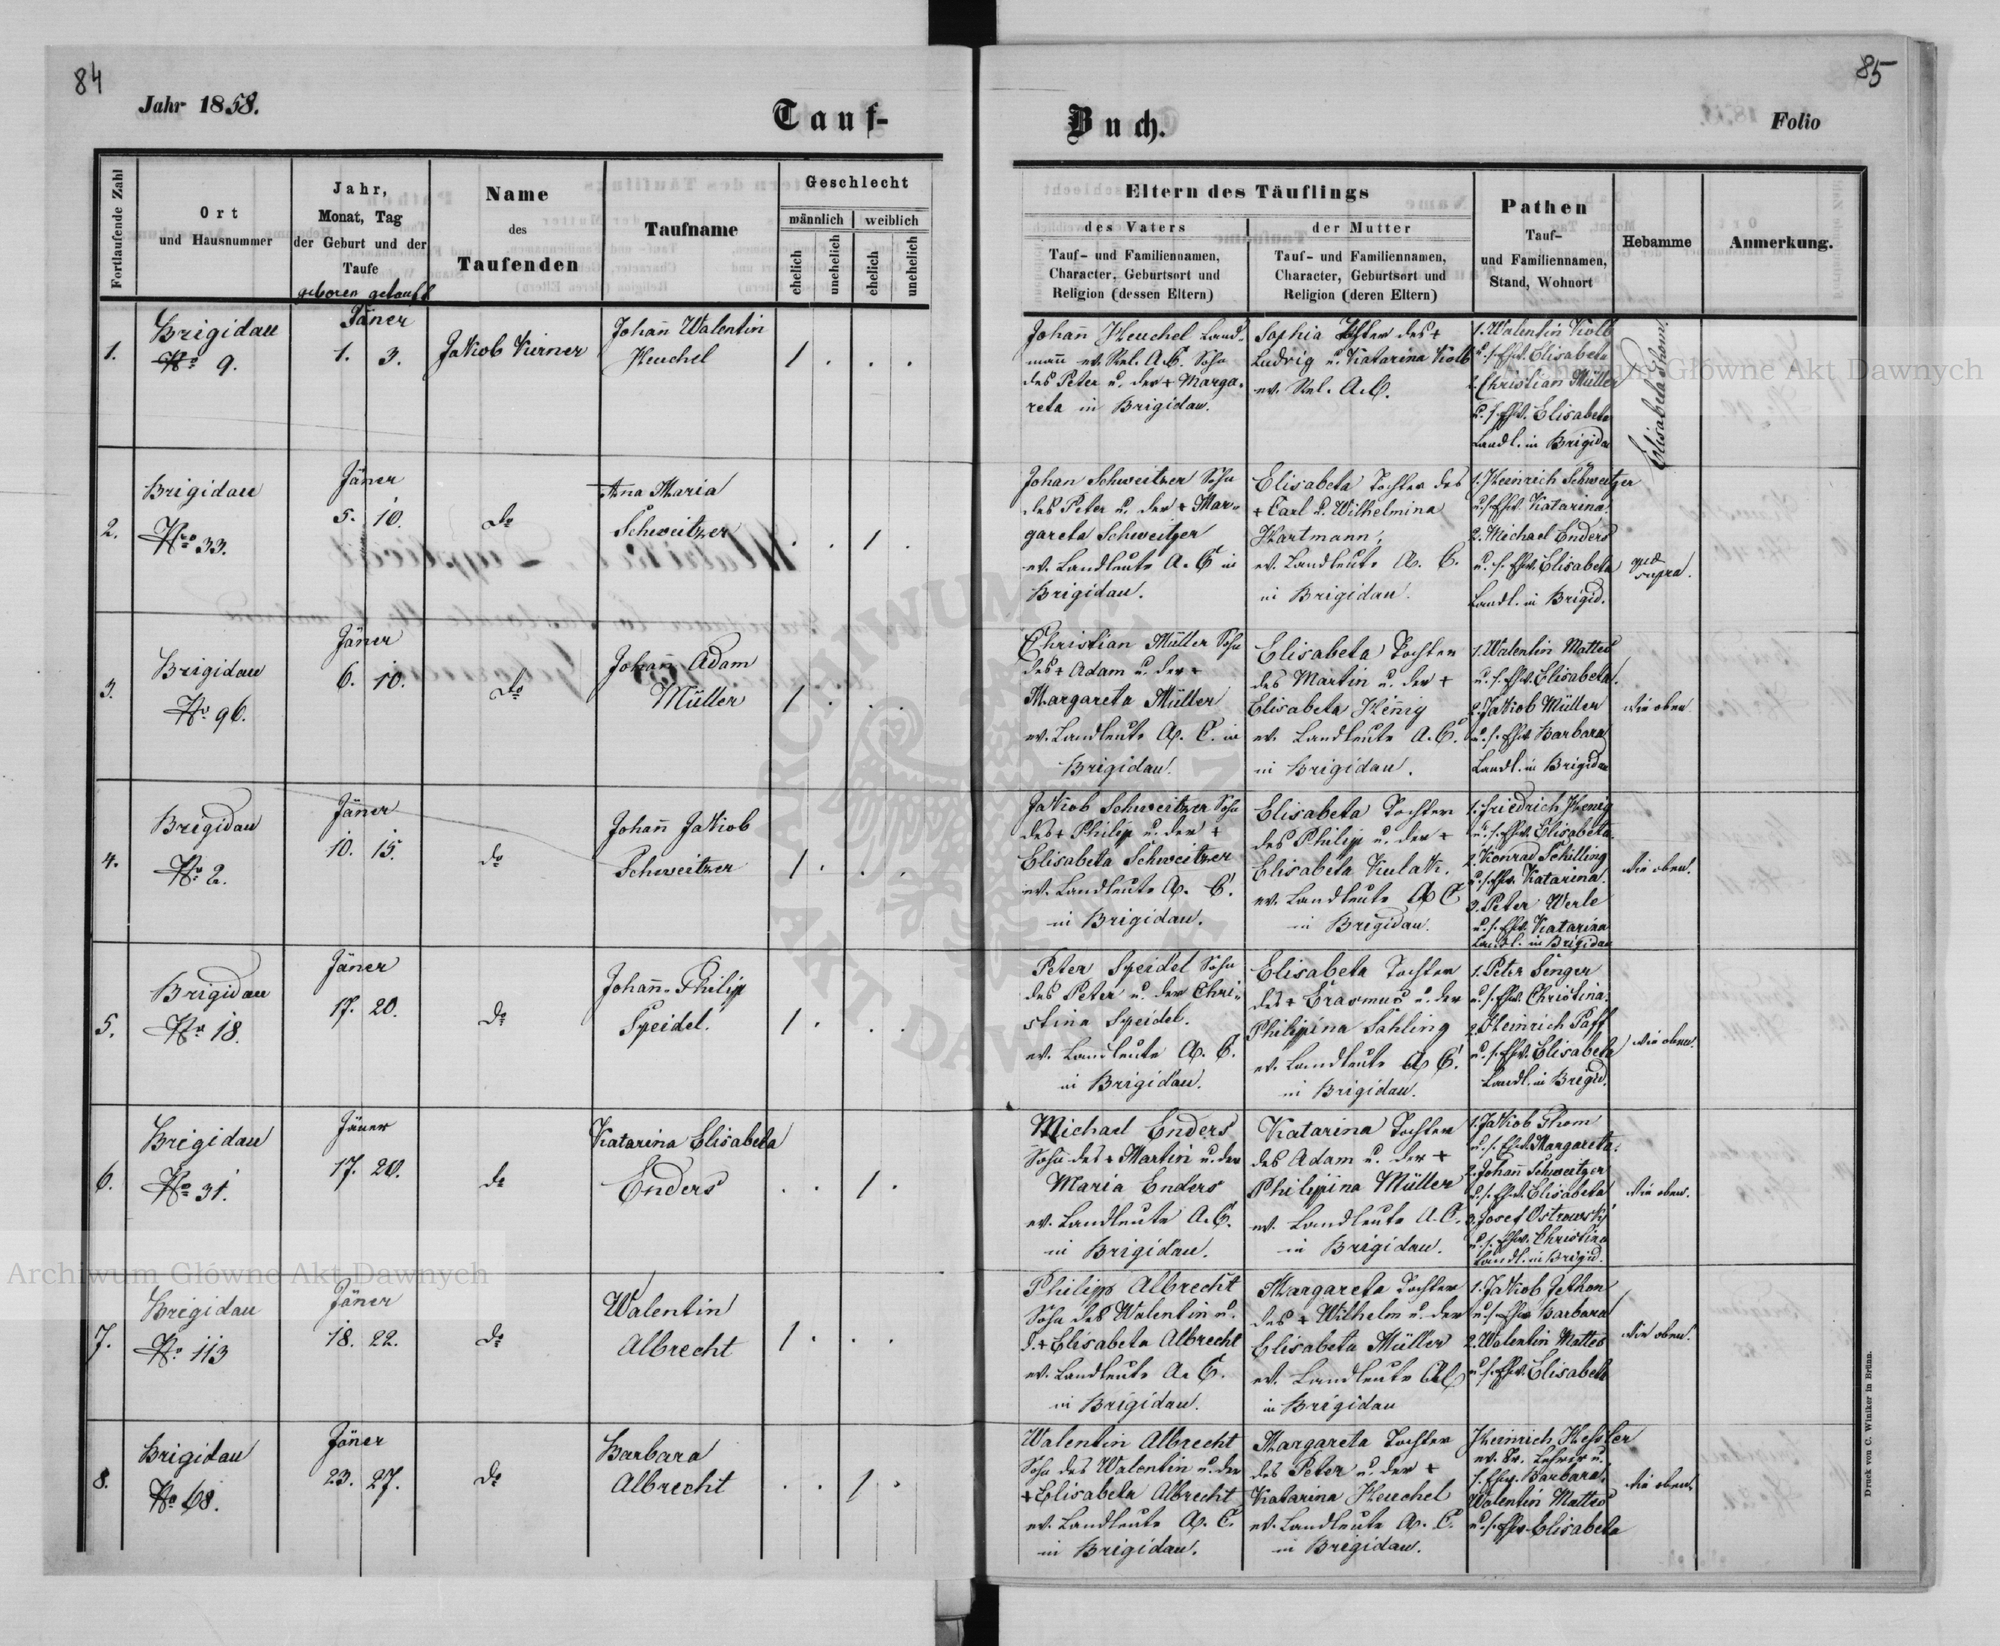 84
Jahr 1858.
Tauf-
Fortlaufende Zahl
Ort
und Hausnummer
Jahr,
Monat, Tag
der Geburt und der
Taufe
geboren getauft
Name
des
Taufenden
Taufname
Geschlecht
männlich
weiblich
ehelich
unehelich
ehelich
unehelich
1.
Brigidau
No 9.
Jäner
1. 3.
Jakob Kirner
Johañ Walentin
Heuchel
1 . . .
2.
Brigidau
Nro 33.
Jäner
5. 10.
do
Ana Maria
Schweitzer
. . 1 .
3.
Brigidau
No 96.
Jäner
6. 10.
do
Johañ Adam
Müller
1 . . .
4.
Brigidau
No 2.
Jäner
10. 15.
do
Johañ Jakob
Schweitzer
1 . . .
5.
Brigidau
No 18.
Jäner
17. 20.
do
Johañ Philip
Speidel.
1 . . .
6.
Brigidau
No 31.
Jäner
17. 20.
do
Katarina Elisabeta
Enders
. . 1 .
7.
Brigidau
No 113
Jäner
18. 22.
do
Walentin
Albrecht
1 . . .
8.
Brigidau
No 68.
Jäner
23. 27.
do
Barbara
Albrecht
. . 1 .
85
Buch.
Folio
Eltern des Täuflings
des Vaters
Tauf- und Familiennamen,
Character, Geburtsort und
Religion (dessen Eltern)
der Mutter
Tauf- und Familiennamen,
Character, Geburtsort und
Religion (deren Eltern)
Pathen
Tauf-
und Familiennamen,
Stand, Wohnort
Hebamme
Anmerkung.
Johañ Heuchel Land-
mañ ev. Rel. A.C. Sohn
des Peter u. der + Marga-
reta in Brigidau.
Sophia Tochter des +
Ludwig u. Katarina Kolb
ev. Rel. A.C.
1. Walentin Kolb
u. s. Ehw. Elisabeta
2. Christian Müller
u. s. Ehw. Elisabeta
Landl. in Brigidau
Elisabeta Thom.
Johan Schweitzer Sohn
des Peter u. der + Mar-
gareta Schweitzer
ev. Landleute A. C. in
Brigidau.
Elisabeta Tochter des
+ Carl u. Wilhelmina
Hartmann.
ev. Landleute A. C.
in Brigidau.
1. Heinrich Schweitzer
u. s. Ehw. Katarina.
2. Michael Enders
u. s. Ehw. Elisabeta
Landl. in Brigid.
supra.
Christian Müller Sohn
des + Adam u. der +
Margareta Müller
ev. Landleute A. C. in
Brigidau.
Elisabeta Tochter
des Martin u. der +
Elisabeta
ev. Landleute A. C.
in Brigidau.
1. Walentin Mattes
u. s. Ehw. Elisabeta.
2. Jakob Müller
u. s. Ehw. Barbara
Landl. in Brigidau
wie oben
Jakob Schweitzer Sohn
des + Philip u. der +
Elisabeta Schweitzer
ev. Landleute A. C.
in Brigidau.
Elisabeta Tochter
des Philip u. der +
Elisabeta Kulak.
ev. Landleute A C
in Brigidau.
1. Friedrich
u. s. Ehw. Elisabeta.
2. Konrad Schilling
u. s. Ehw. Katarina.
3. Peter Werle
u. s. Ehw. Katarina
Landl. in Brigidau
wie oben.
Peter Speidel Sohn
des Peter u. der Chri-
stina Speidel.
ev. Landleute A. C.
in Brigidau.
Elisabeta Tochter
des + Erasmus u. der
Philippina Sahling
ev. Landleute A C.
in Brigidau.
1. Peter Senger
u. s. Ehw. Christina.
2. Heinrich Paff
u. s. Ehw. Elisabeta
Landl. in Brigid.
wie oben.
Michael Enders
Sohn des + Martin u. der
Maria Enders
ev. Landleute A. C.
in Brigidau.
Katarina Tochter
des Adam u. der +
Philippina Müller
ev. Landleute A. C.
in Brigidau.
1. Jakob Thom
u. s. Ehw. Margareta.
2. Johañ Schweitzer
u. s. Ehw. Elisabeta
3. Josef Ostrowsky
u. s. Ehw. Christina
Landl. in Brigid.
wie oben.
Philipp Albrecht
Sohn des Walentin u.
d. + Elisabeta Albrecht
ev. Landleute A. C.
in Brigidau.
Margareta Tochter
des + Wilhelm u. der
Elisabeta Müller
ev. Landleute AC
in Brigidau
1. Jakob Jethon
u. s. Ehw. Barbara
2. Walentin Mattes
u. s. Ehw. Elisabeta
wie oben.
Walentin Albrecht
Sohn des Walentin u. der
+ Elisabeta Albrecht
ev. Landleute A. C.
in Brigidau.
Margareta Tochter
des Peter u. der +
Katarina Heuchel
ev. Landleute A. C.
in Brigidau.
Heinrich Kessler
ev. Lehrer u.
s. Ehw. Barbara.
Walentin Mattes
u. s. Ehw. Elisabeta
wie oben.
Druck von C. Winiker in Brünn.
Archiwum Główne Akt Dawnych
Archiwum Główne Akt Dawnych
ARCHIWUM
AKT DAWNYCH